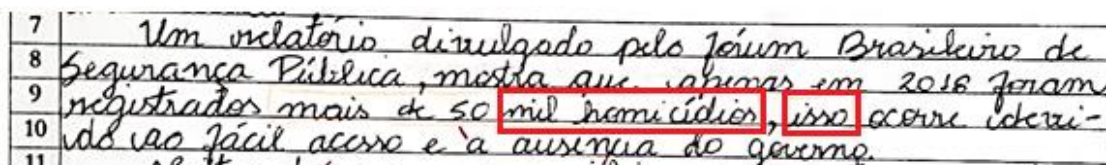 7 Um relatório divulgado pelo Fórum Brasileiro de
8 Segurança Pública, mostra que apenas em 2016 foram
9 registrados mais de 50 mil homicídios, isso ocorre
10 ao fácil acesso e à ausência do governo.
11